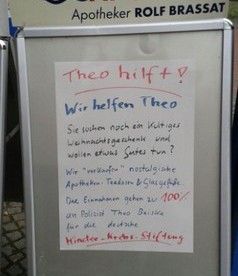 Apotheker ROLF BRASSAT
Theo hilft!
Wir helfen Theo
Sie suchen noch ein kultiges
Weihnachtsgeschenk und
wollen etwas Gutes tun?
Wir "verkaufen" nostalgische
Apotheken-Teedosen & Glasgefäße.
Die Einnahmen gehen zu 100%
an Polizist Theo
für die deutsche
Kinder-Krebs-Stiftung